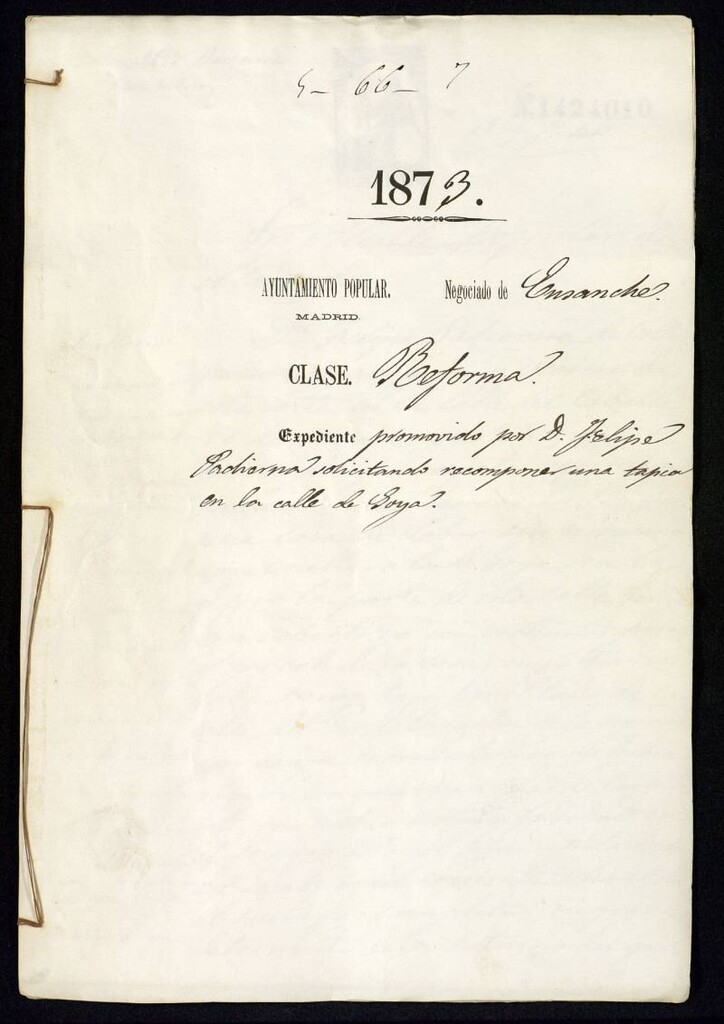 5-66-7
1873.
AYUNTAMIENTO POPULAR. Negociado de Ensanche.
MADRID.
CLASE. Reforma.
Expediente promovido por D. Felipe
Padierna solicitando recomponer una tapia
en la calle de Goya.